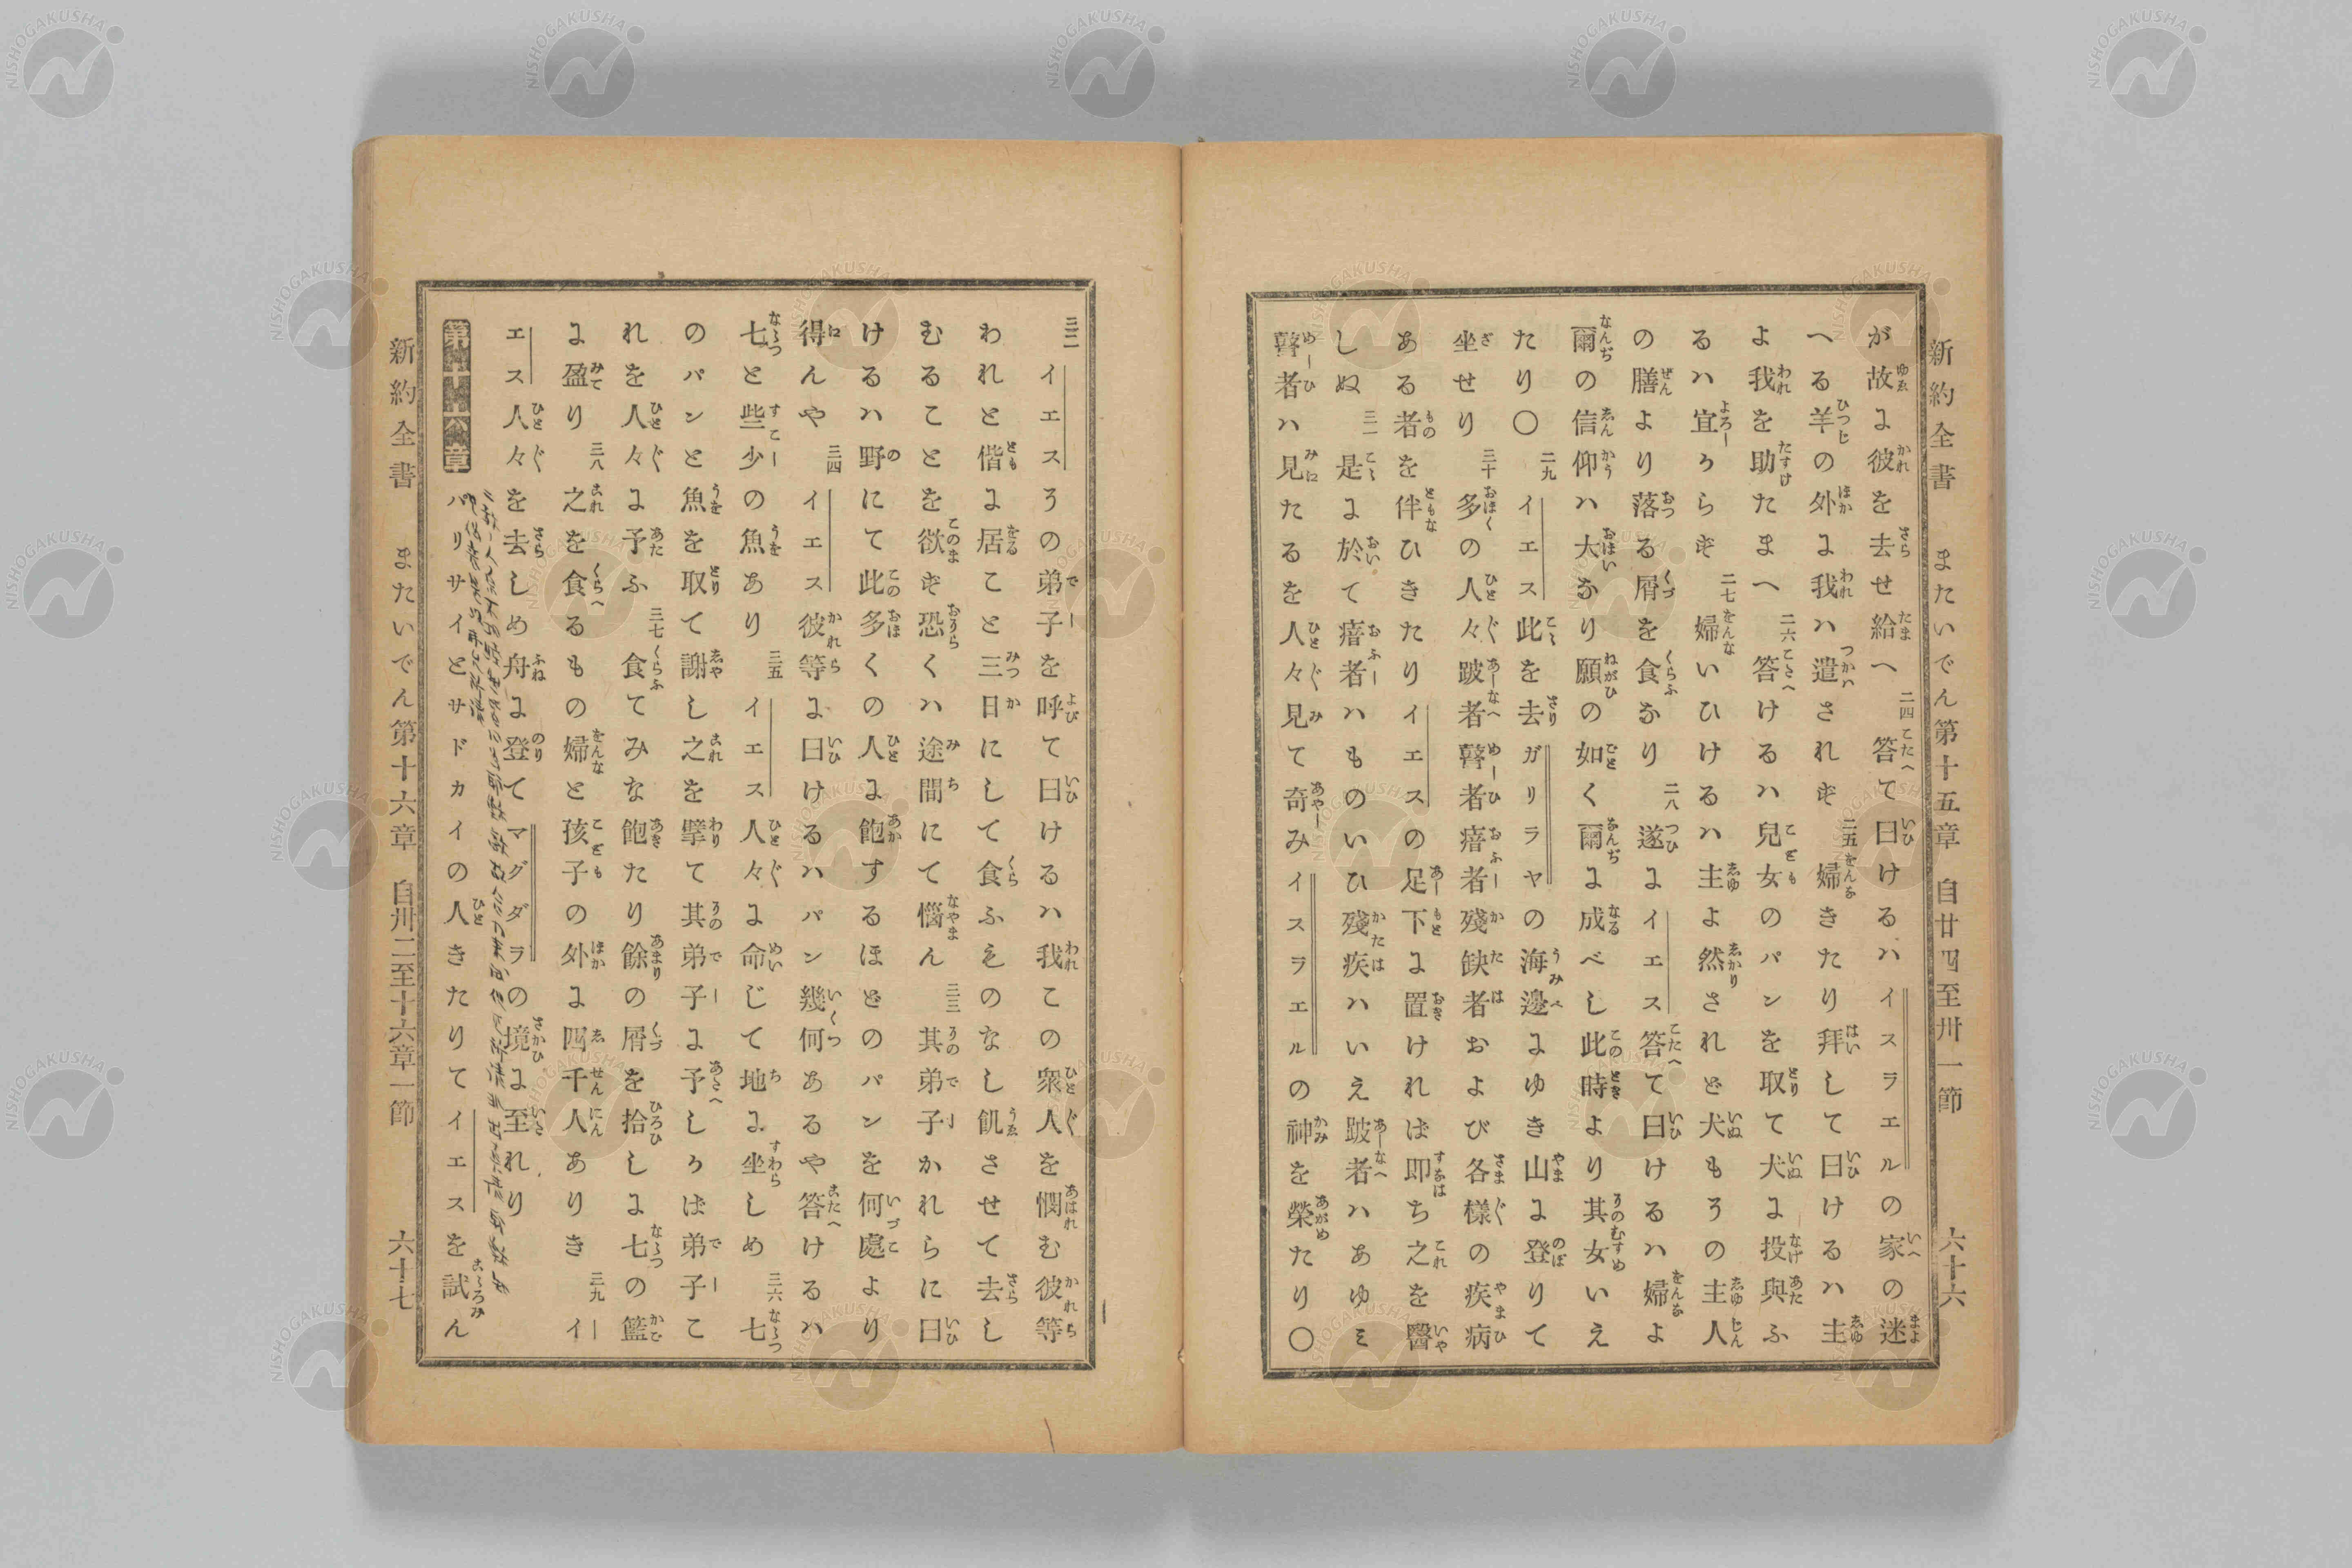 新約全書　またいでん第十五章　自廿四至卅一節　六十六
が故に彼を去せ給へ 二四 答て曰けるハイスラエルの家の迷
へる羊の外に我ハ遣されず 二五 婦きたり拝して曰けるハ主
よ我を助たまへ 二六 答けるハ兒女のパンを取て犬に投與ふ
るハ宜からず 二七 婦いひけるハ主よ然されど犬もその主人
の膳より落る屑を食なり 二八 遂にイエス答て曰けるハ婦よ
爾の信仰ハ大なり願の如く爾に成べし此時より其女いえ
たり〇 二九 イエス此を去ガリラヤの海邊にゆき山に登りて
坐せり 三十 多の人々跛者瞽者瘖者殘缺者および各樣の疾病
ある者を伴ひきたりイエスの足下に置ければ即ち之を醫
しぬ 三一 是に於て瘖者ハものいひ殘疾ハいえ跛者ハあゆミ
瞽者ハ見たるを人々見て奇みイスラエルの神を榮たり〇
三二 イエスその弟子を呼て曰けるハ我この衆人を憫む彼等
われと偕に居こと三日にして食ふものなし飢させて去し
むることを欲ず恐くハ途間にて惱ん 三三 其弟子かれらに曰
けるハ野にて此多くの人に飽するほどのパンを何處より
得んや 三四 イエス彼等に曰けるハパン幾何あるや答けるハ
七と些少の魚あり 三五 イエス人々に命じて地に坐しめ 三六 七
のパンと魚を取て謝し之を擘て其弟子に予しかば弟子こ
れを人々に予ふ 三七 食てみな飽たり餘の屑を拾しに七の籃
に盈り 三八 之を食へるもの婦と孩子の外に四千人ありき 三九 イ
エス人々を去しめ舟に登てマグダラの境に至れり
第十六章 パリサイとサドカイの人きたりてイエスを試ん
新約全書　またいでん第十六章　自卅二至十六章一節　六十七
NISHOGAKUSHA